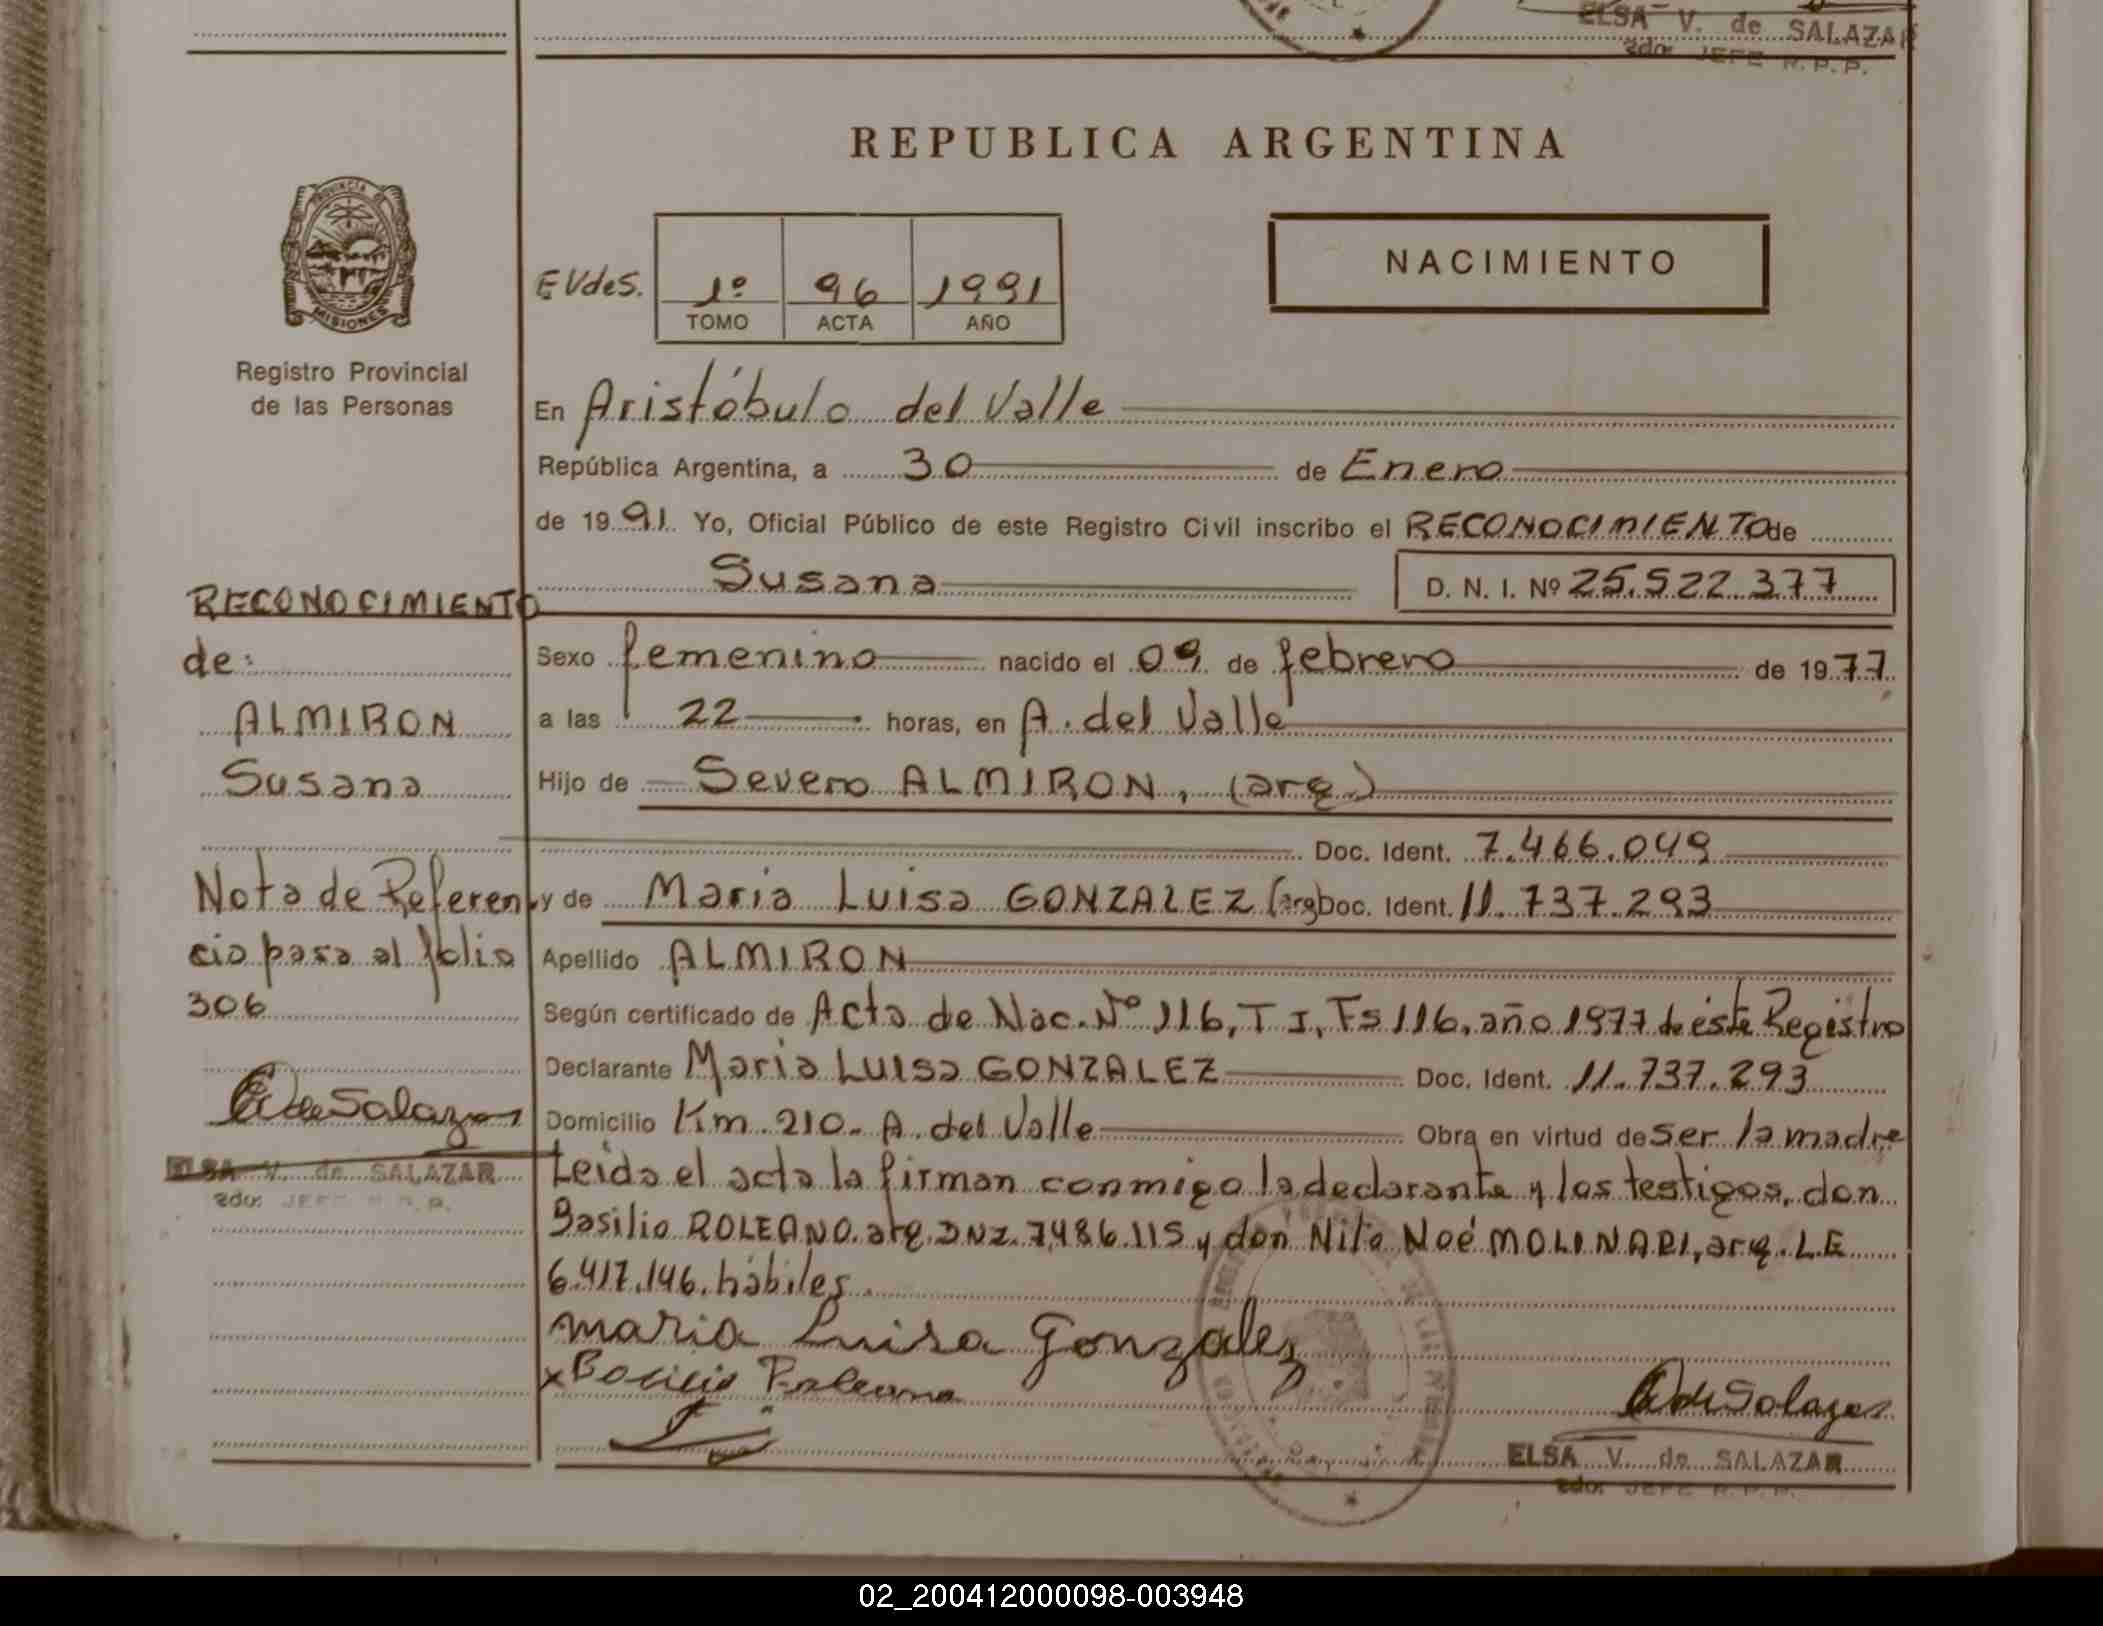 ELSA V. de SALAZAR
2do. JEFE R.P.P.
REPUBLICA ARGENTINA
PROVINCIA DE
MISIONES
Registro Provincial
de las Personas
EVdeS.
1º 96 1991
TOMO ACTA AÑO
NACIMIENTO
En Aristóbulo del Valle
República Argentina, a 30 de Enero
de 1991. Yo, Oficial Público de este Registro Civil inscribo el RECONOCIMIENTO de
Susana D. N. I. Nº 25.522.377
Sexo femenino nacido el 09 de febrero de 1977
a las 22 horas, en A. del Valle
Hijo de Severo ALMIRON, (arg.)
Doc. Ident. 7.466.049
y de Maria Luisa GONZALEZ (arg) Doc. Ident. 11.737.293
Apellido ALMIRON
Según certificado de Acta de Nac. Nº 116, T I, Fs 116, año 1977 de éste Registro
Declarante Maria LUISA GONZALEZ Doc. Ident. 11.737.293
Domicilio Km. 210. A. del Valle Obra en virtud de ser la madre
Leida el acta la firman conmigo la declarante y los testigos, don
Basilio ROLEANO. arg. DNI. 7.486.115 y don Nilo Noé MOLINARI, arg. L.E
6.417.146. hábiles.
maria Luisa Gonzalez
x Bacilio Roleano
deSalazar
ELSA V. de SALAZAR
2do. JEFE R.P.P.
RECONOCIMIENTO
de:
ALMIRON
Susana
Nota de Referen
cia pasa al folio
306
deSalazar
ELSA V. de SALAZAR
2do. JEFE R.P.P.
02_200412000098-003948